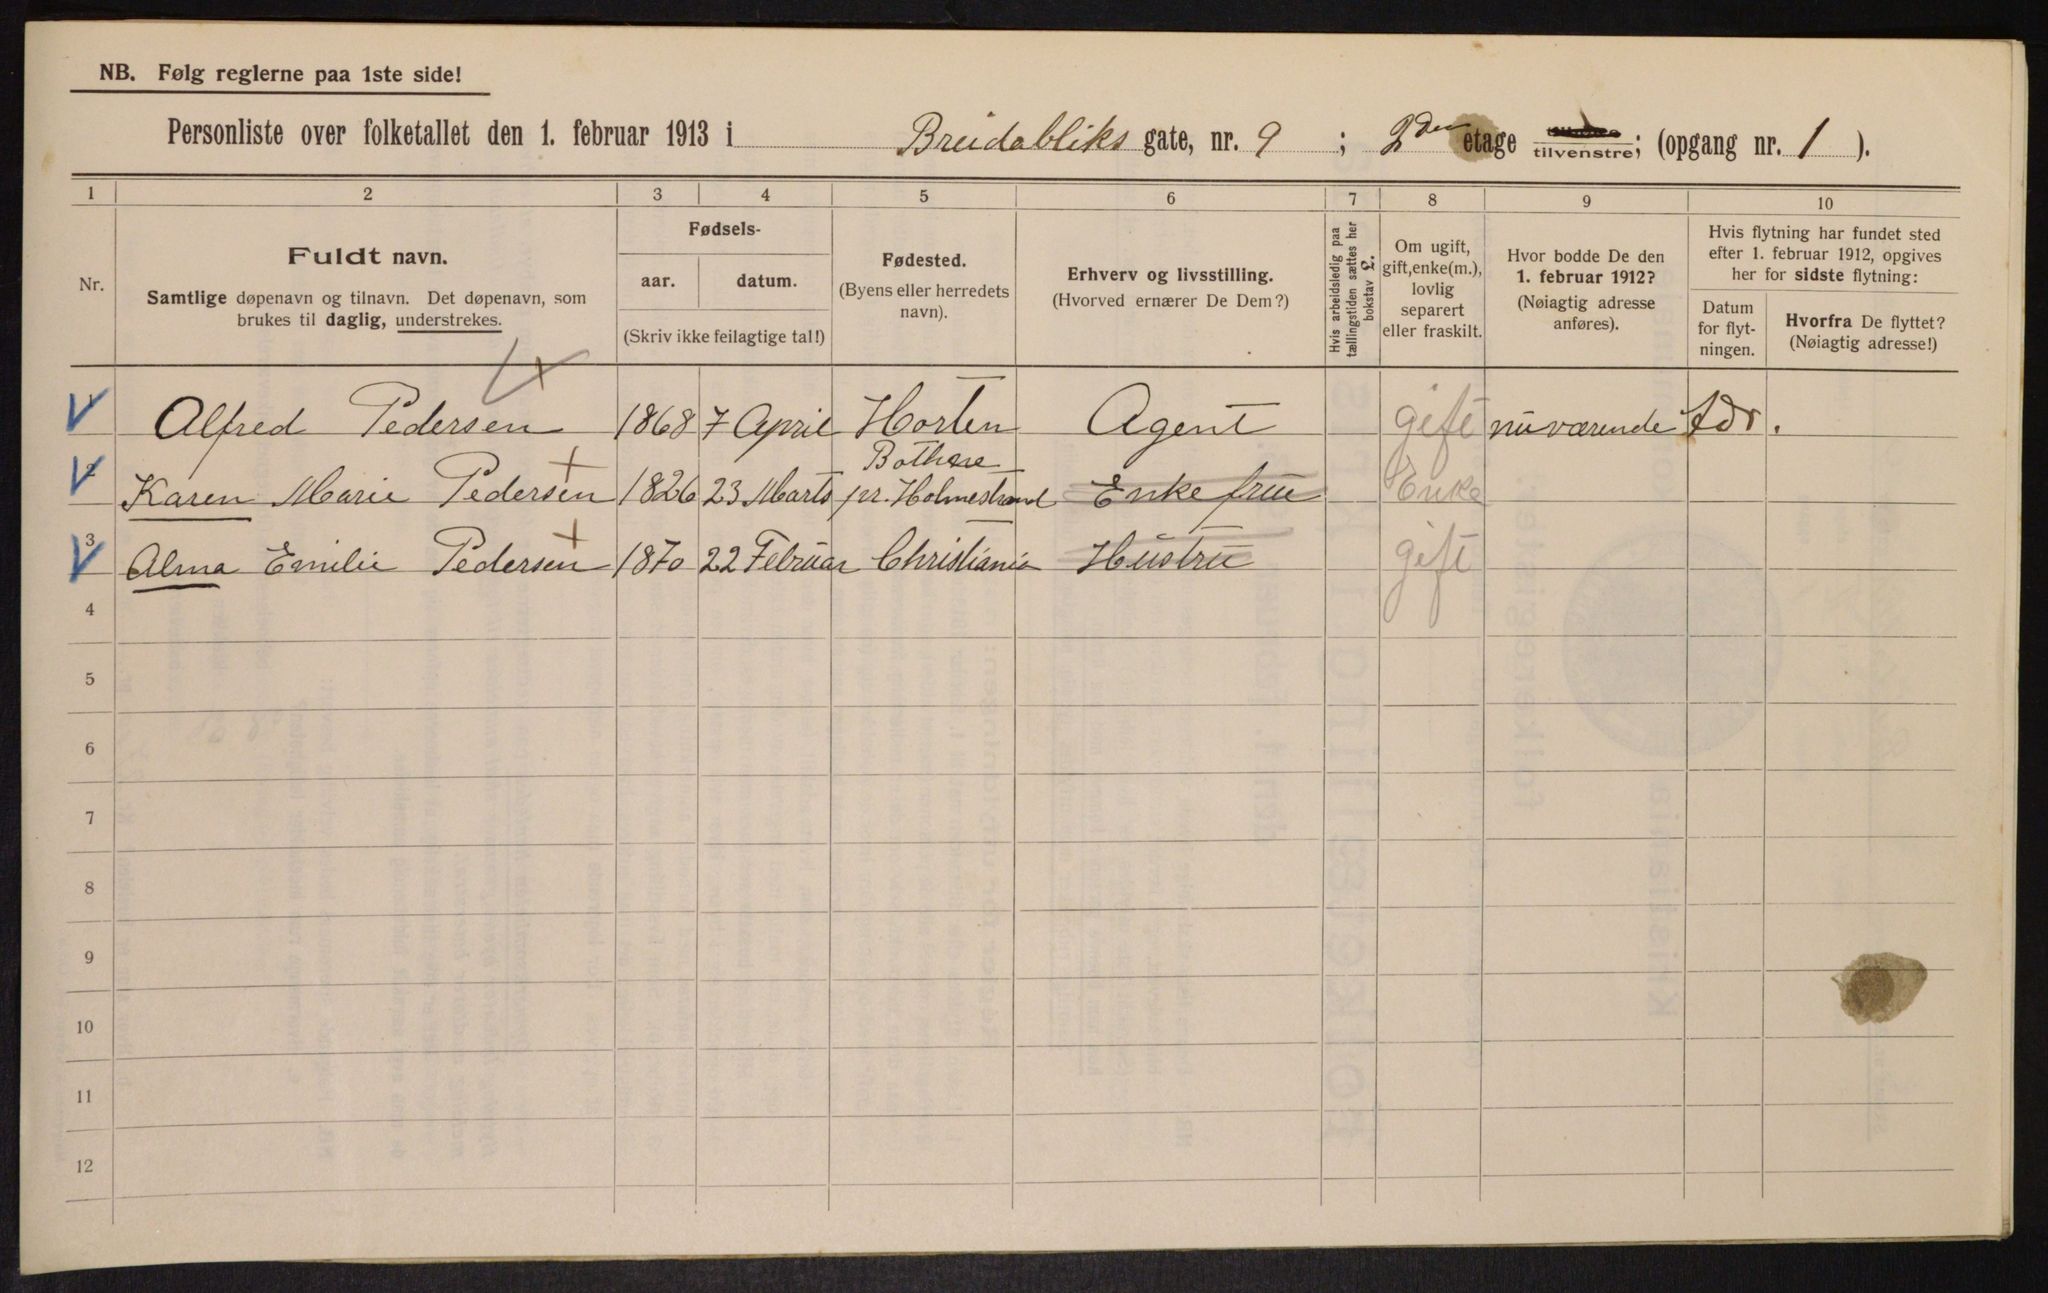 NB. Følg reglerne paa 1ste side!
Personliste over folketallet den 1. februar 1913 i Breidabliks gate, nr. 9 ; 2den etage tilvenstre; (opgang nr. 1 ).
1 2 3 4 5 6 7 8 9 10
Nr.
Fuldt navn.
Samtlige døpenavn og tilnavn. Det døpenavn, som
brukes til daglig, understrekes.
Fødsels-
aar. datum.
(Skriv ikke feilagtige tal!)
Fødested.
(Byens eller herredets
navn).
Erhverv og livsstilling.
(Hvorved ernærer De Dem?)
Hvis arbeidsledig paa
tællingstiden sættes her
bokstav £.
Om ugift,
gift, enke(m.),
lovlig
separert
eller fraskilt.
Hvor bodde De den
1. februar 1912?
(Nøiagtig adresse
anføres).
Hvis flytning har fundet sted
efter 1. februar 1912, opgives
her for sidste flytning:
Datum
for flyt-
ningen.
Hvorfra De flyttet?
(Nøiagtig adresse!)
1 Alfred Pedersen 1868 7 April Horten Agent gift nuværende Adr.
2 Karen Marie Pedersen 1826 23 Marts Bothne
pr. Holmestrand Enkefrue Enke
3 Alma Emilie Pedersen 1870 22 Februar Christiania Hustru gift
4
5
6
7
8
9
10
11
12